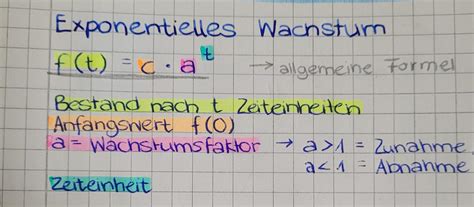 Exponentielles Wachstum
f(t) = c · a^t → allgemeine Formel
Bestand nach t Zeiteinheiten
Anfangswert f(0)
a = Wachstumsfaktor → a>1 = Zunahme
a<1 = Abnahme
Zeiteinheit